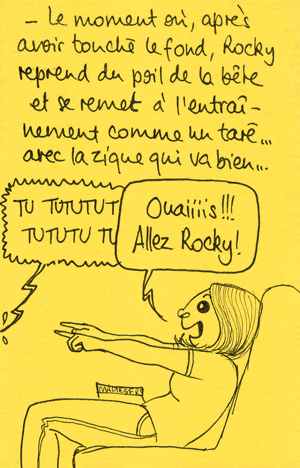 - Le moment où, après
avoir touché le fond, Rocky
reprend du poil de la bête
et se remet à l'entraî-
nement comme un taré...
avec la zique qui va bien...
TU TUTUTUT
TUTUTU TU
Ouaiiiis!!!
Allez Rocky!
MALTESERS